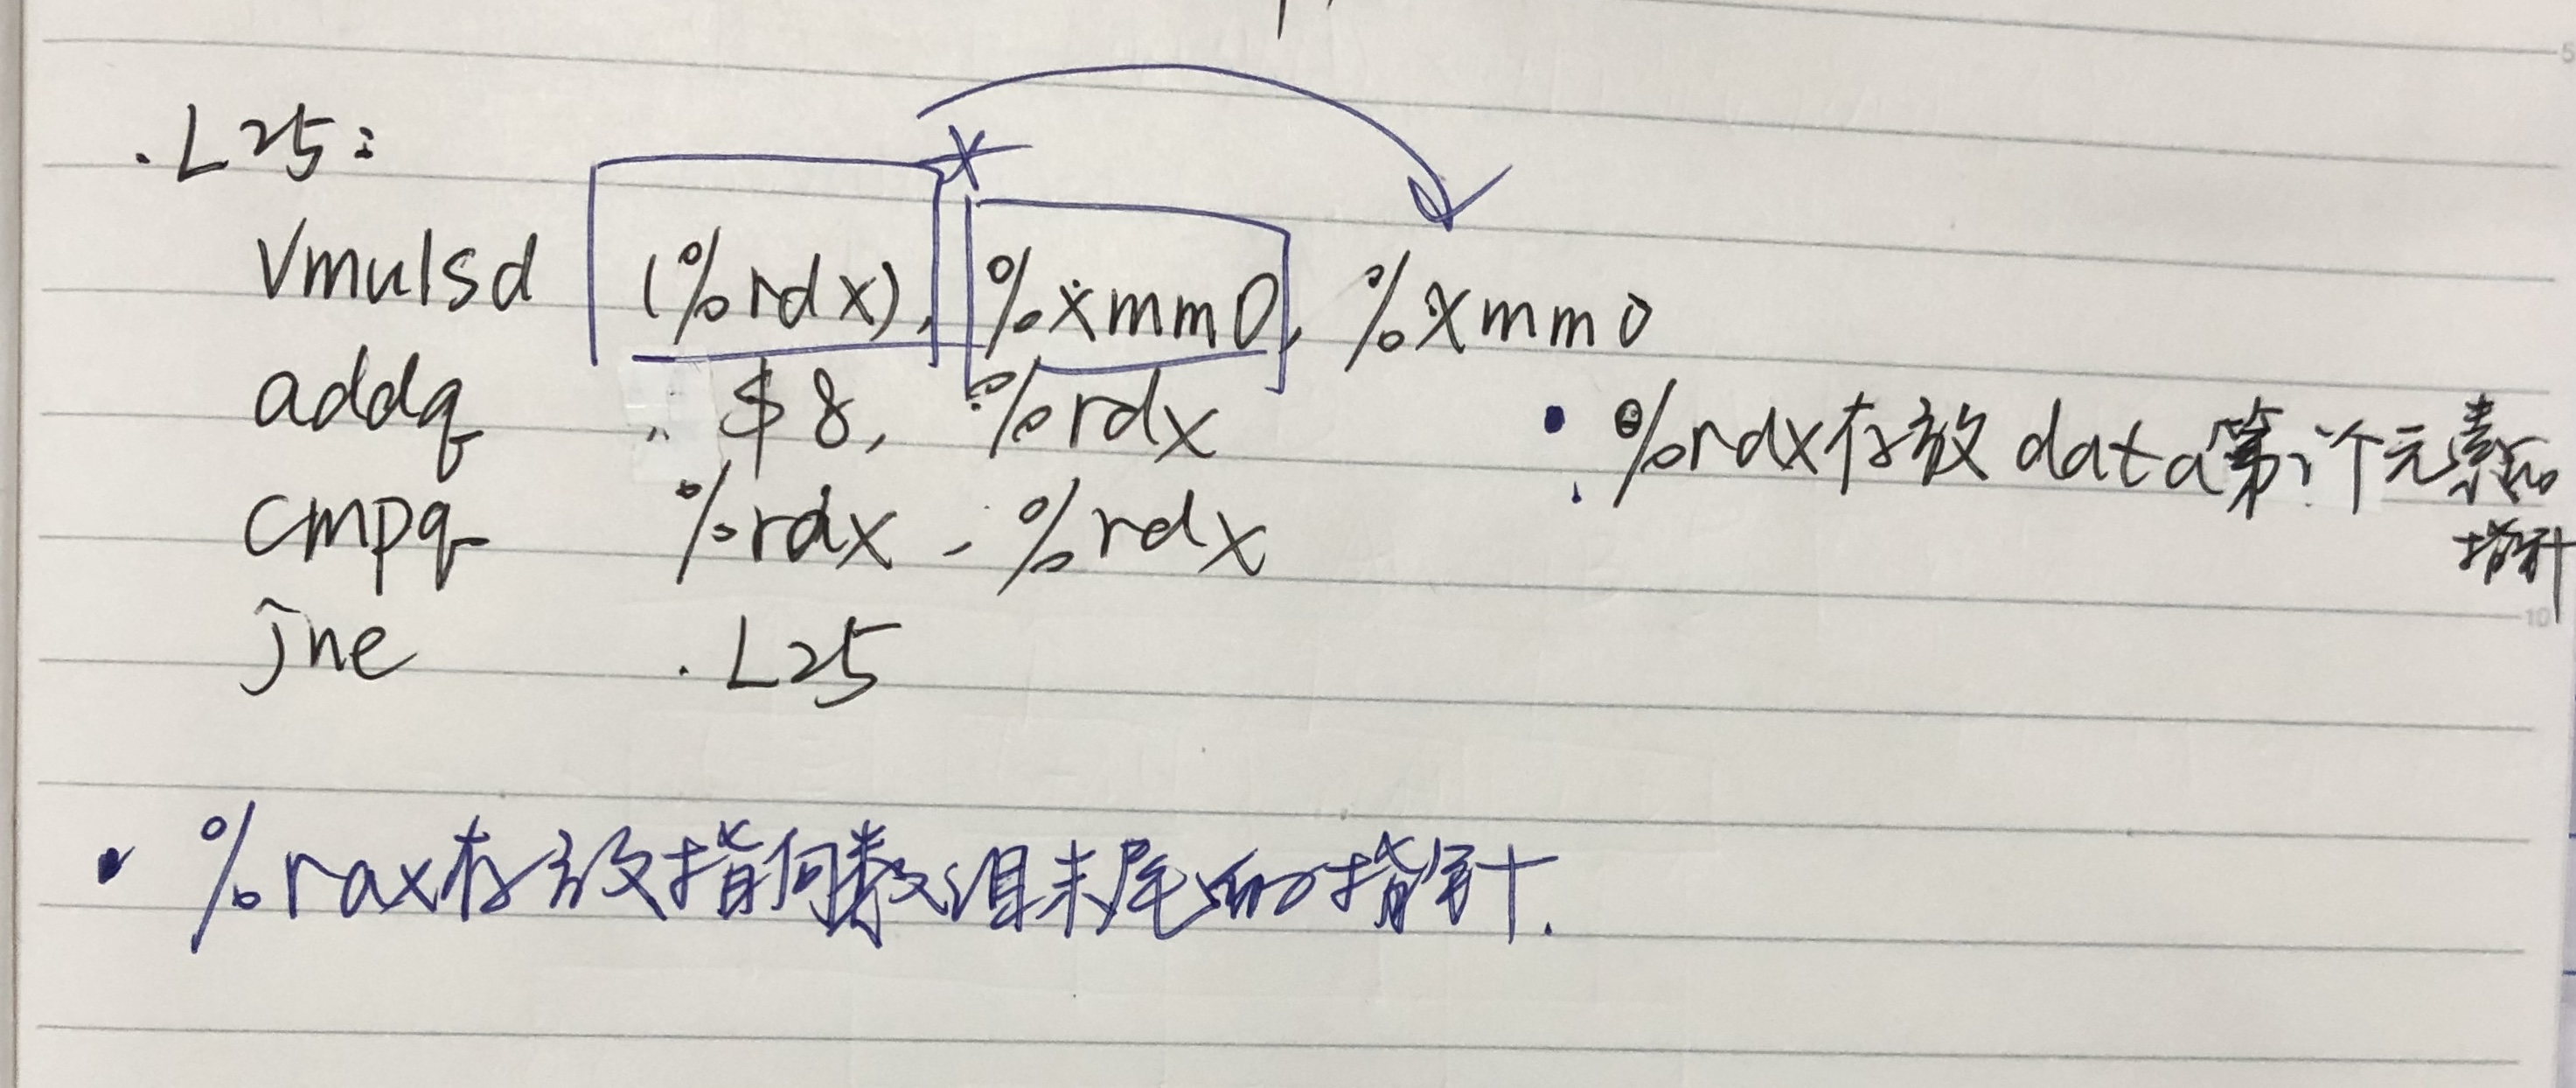 .L25:
vmulsd (%rdx), %xmm0, %xmm0
×
addq $8, %rdx
cmpq %rdx, %rdx
jne .L25
• %rdx存放data第i个元素的
指针
• %rax存放指向数组末尾的指针.
5
10